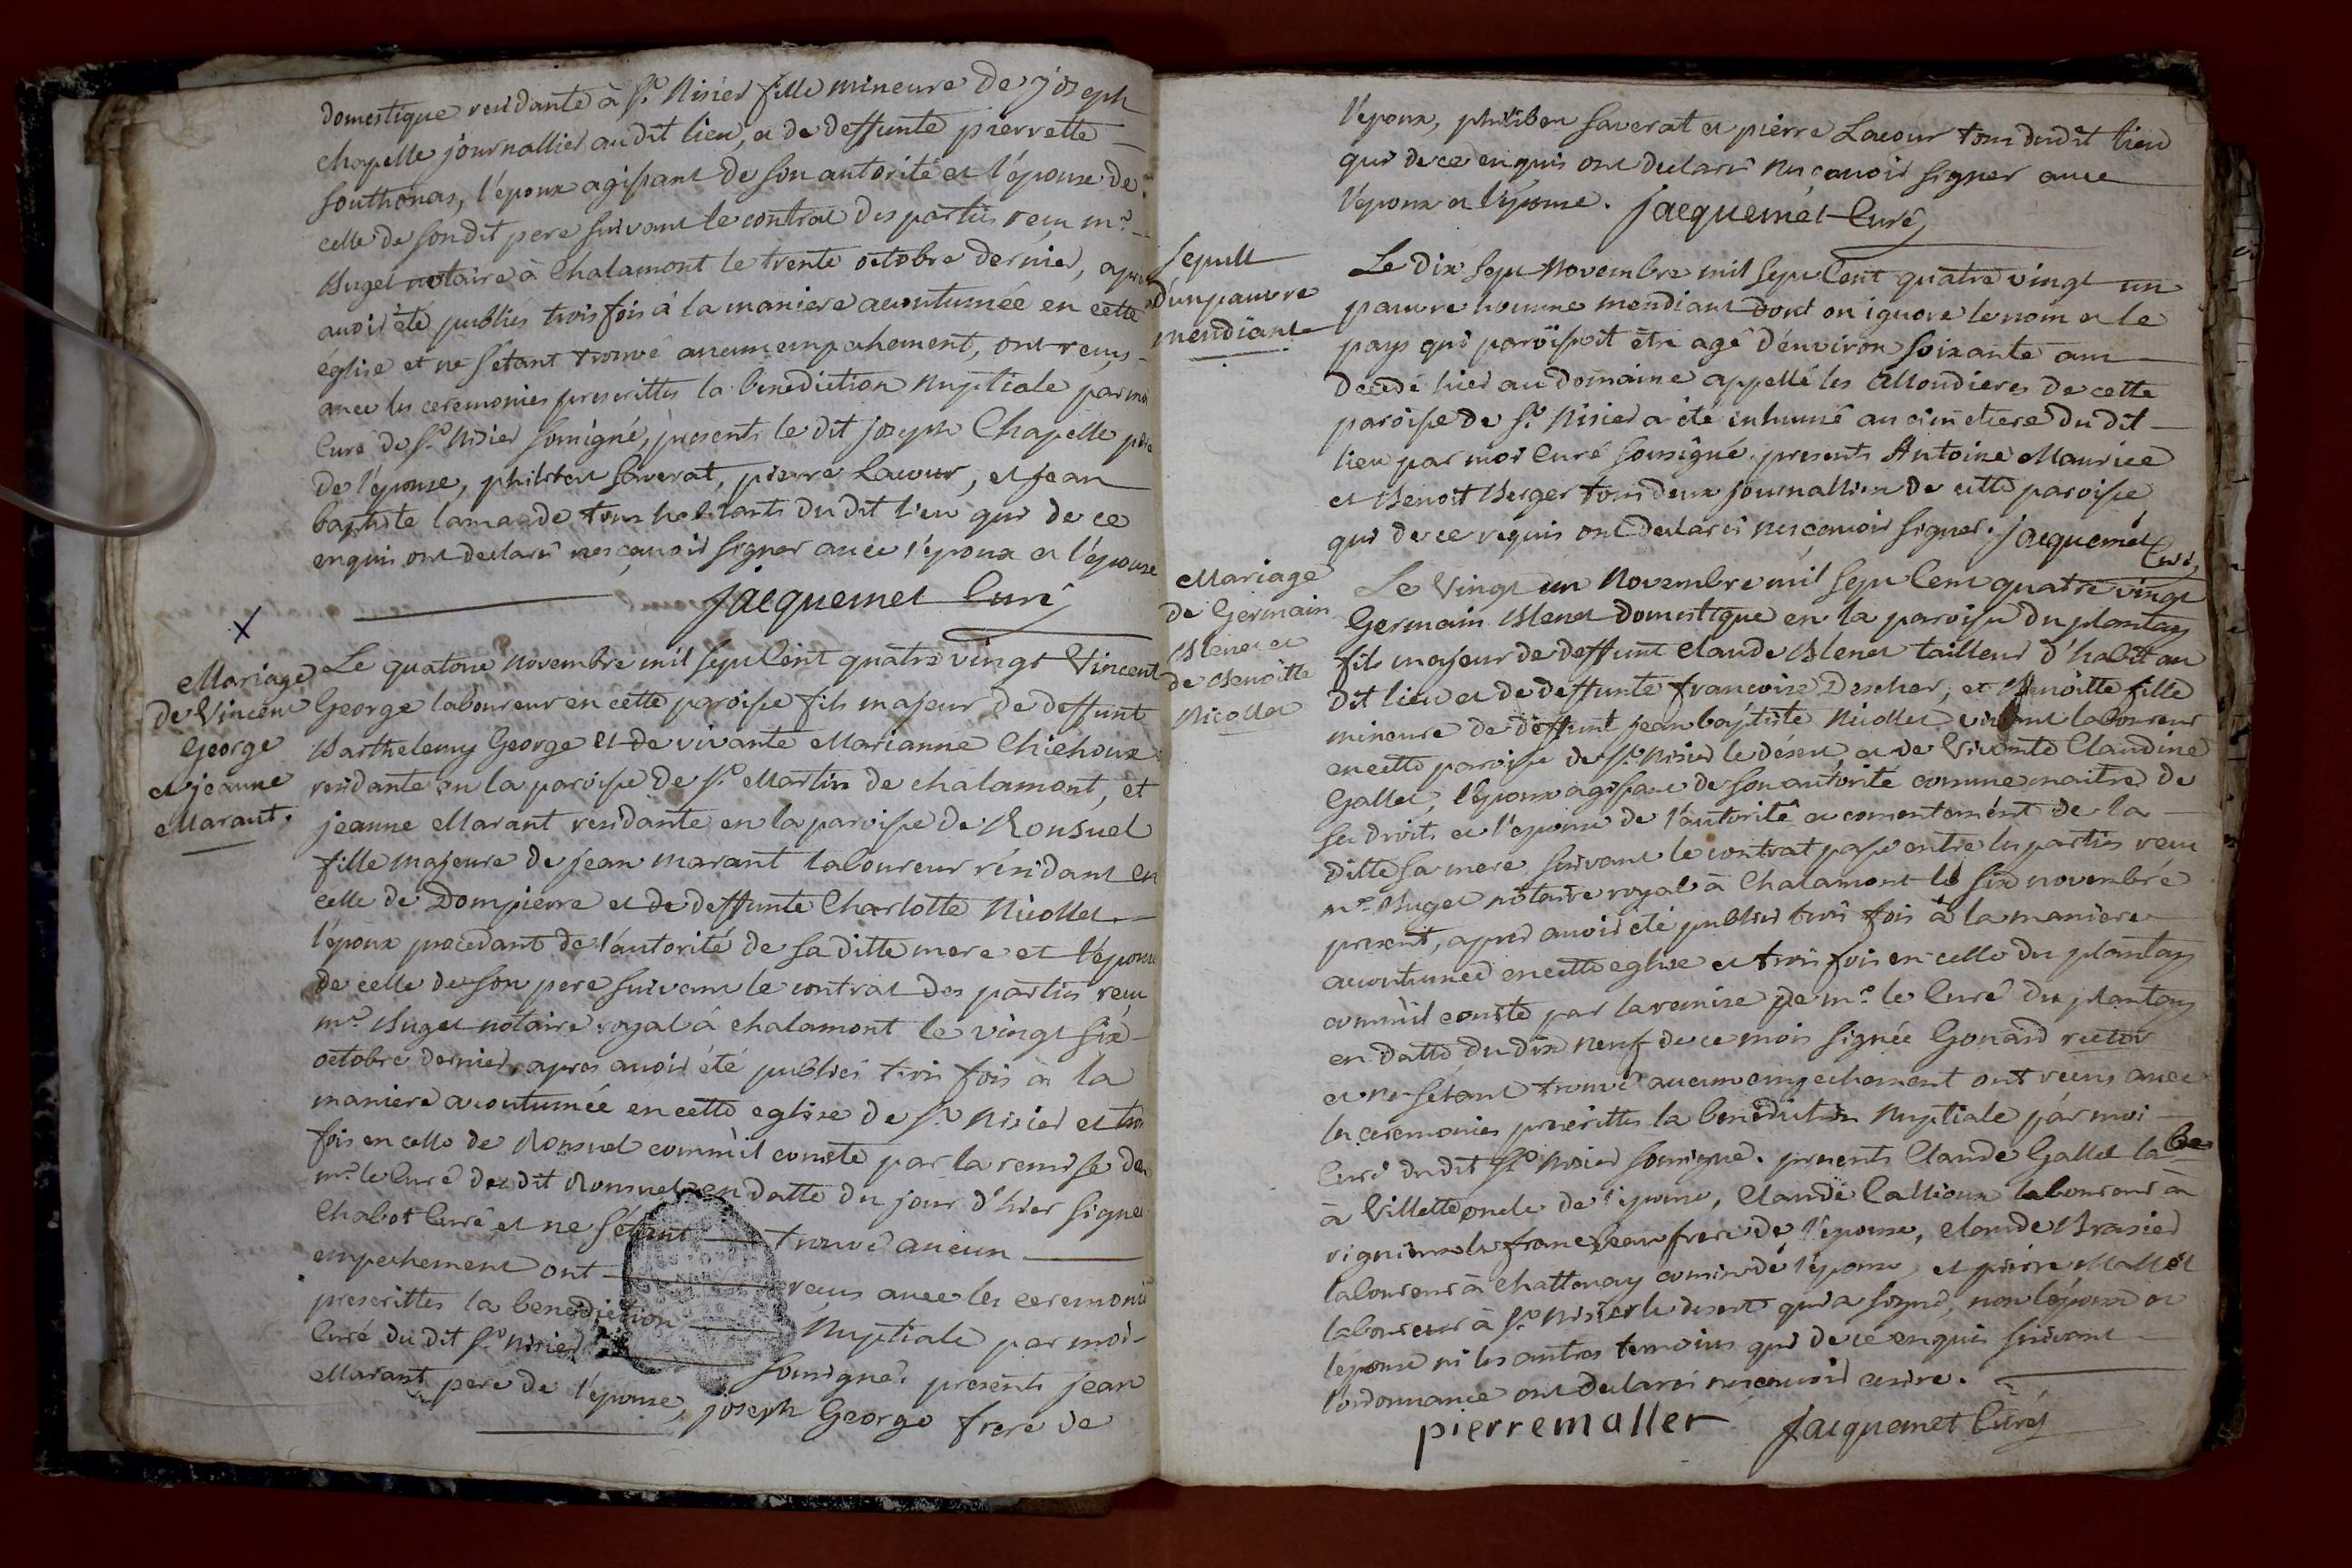 domestique residante à St. Nisier fille mineure de joseph
chapelle journallier audit lieu, et de deffunte pierrette
Southonas, l'époux agissant de son autorité et l'épouse de
celle de son dit pere suivant le contrat des parties reçu me.
Buget notaire à Chalamont le trente octobre dernier, apres
avoir été publiés trois fois à la maniere acoutumée en cette
église et ne s'étant trouvé aucun empechement, ont reçus
avec les ceremonies prescrittes la benediction nuptiale par moi
Curé de St. Nisier soussigné, presents le dit joseph Chapelle pere
de l'épouse, philibert Saverat, pierre Lacour, et jean
baptiste lamande tous habitants du dit lieu qui de ce
enquis ont declaré ne sçavoir signer avec l'époux et l'épouse
Jacquemet Curé
Mariage
de Vincent
George
et jeanne
Marant.
Le quatorze novembre mil sept Cent quatre vingt Vincent
George laboureur en cette paroisse fils majeur de deffunt
Barthelemy George et de vivante Marianne Chichoux
residante en la paroisse de St. Martin de chalamont, et
jeanne Marant residante en la paroisse de Ronsuel
fille majeure de jean marant laboureur résidant en
celle de Dompierre et de deffunte Charlotte Nicollet
l'époux procedant de l'autorité de sa ditte mere et l'épouse
de celle de son pere suivant le contrat des parties reçu
me. Buget notaire royal à chalamont le vingt six
octobre dernier, apres avoir été publiés trois fois à la
maniere acoutumée en cette eglise de St. Nisier et trois
fois en celle de Ronsuel comm'il conste par la remise de
mr. le Curé du dit Ronsuel en datte du jour d'hier signée
Chabot Curé et ne s'étant trouvé aucun
empechement ont reçus avec les ceremonies
prescrittes la benediction Nuptiale par moi
Curé du dit St. Nisier soussigné. presents jean
Marant pere de l'épouse, joseph George frere de
l'époux, philibert Saverat et pierre Lacour tous dudit lieu
qui de ce enquis ont declaré ne sçavoir signer avec
l'époux et l'épouse. Jacquemet Curé
Sepult
d'un pauvre
mendiant
Le dix sept Novembre mil sept Cent quatre vingt un
pauvre homme mendiant dont on ignore le nom et le
pays qui paroissoit être agé d'environ soixante ans
decedé hier au domaine appellé les Alloudieres de cette
paroisse de St. Nisier a été inhumé au cimetiere du dit
lieu par moi Curé soussigné. presents Antoine Maurice
et Benoit Berger tous deux journalliers de cette paroisse
qui de ce requis ont declaré ne sçavoir signer. Jacquemet
Curé
Mariage
de Germain
Blenet et
de Benoitte
Nicollet
Le Vingt un Novembre mil sept Cent quatre vingt
Germain Blenet domestique en la paroisse du plantay
fils majeur de deffunt claude Blenet tailleur d'habit au
dit lieu et de deffunte francoise Descher, et Benoitte fille
mineure de deffunt jean baptiste Nicollet vivant laboureur
en cette paroisse de St. Nisier le désert, et de Vivante Claudine
Gallet, l'époux agissant de son autorité comme maitre de
ses droits et l'épouse de l'autorité et consentement de la
ditte sa mere suivant le contrat passé entre les parties reçu
me. Buget notaire royal à Chalamont le six novembre
present, apres avoir été publiés trois fois à la maniere
acoutumée en cette eglise et trois fois en celle du plantay
comm'il conste par la remise de mr. le Curé du plantay
en datte du dix neuf de ce mois signée Gonard recteur
et ne s'étant trouvé aucun empechement ont reçus avec
les ceremonies prescrittes la benediction Nuptiale par moi
Curé dudit St. Nisier soussigné. presents Claude Gallet
à Villette oncle de l'épouse, Claude Callioux laboureur à
le franc beau frere de l'épouse, claude Brasier
laboureur à chattenay cousin de l'épouse, et pierre Mallet
laboureur à St. Nisier le desert qui a signé, non l'époux et
l'épouse ni les autres temoins qui de ce enquis suivant
l'ordonnance ont declaré ne sçavoir ecrire.
pierre maller Jacquemet Curé